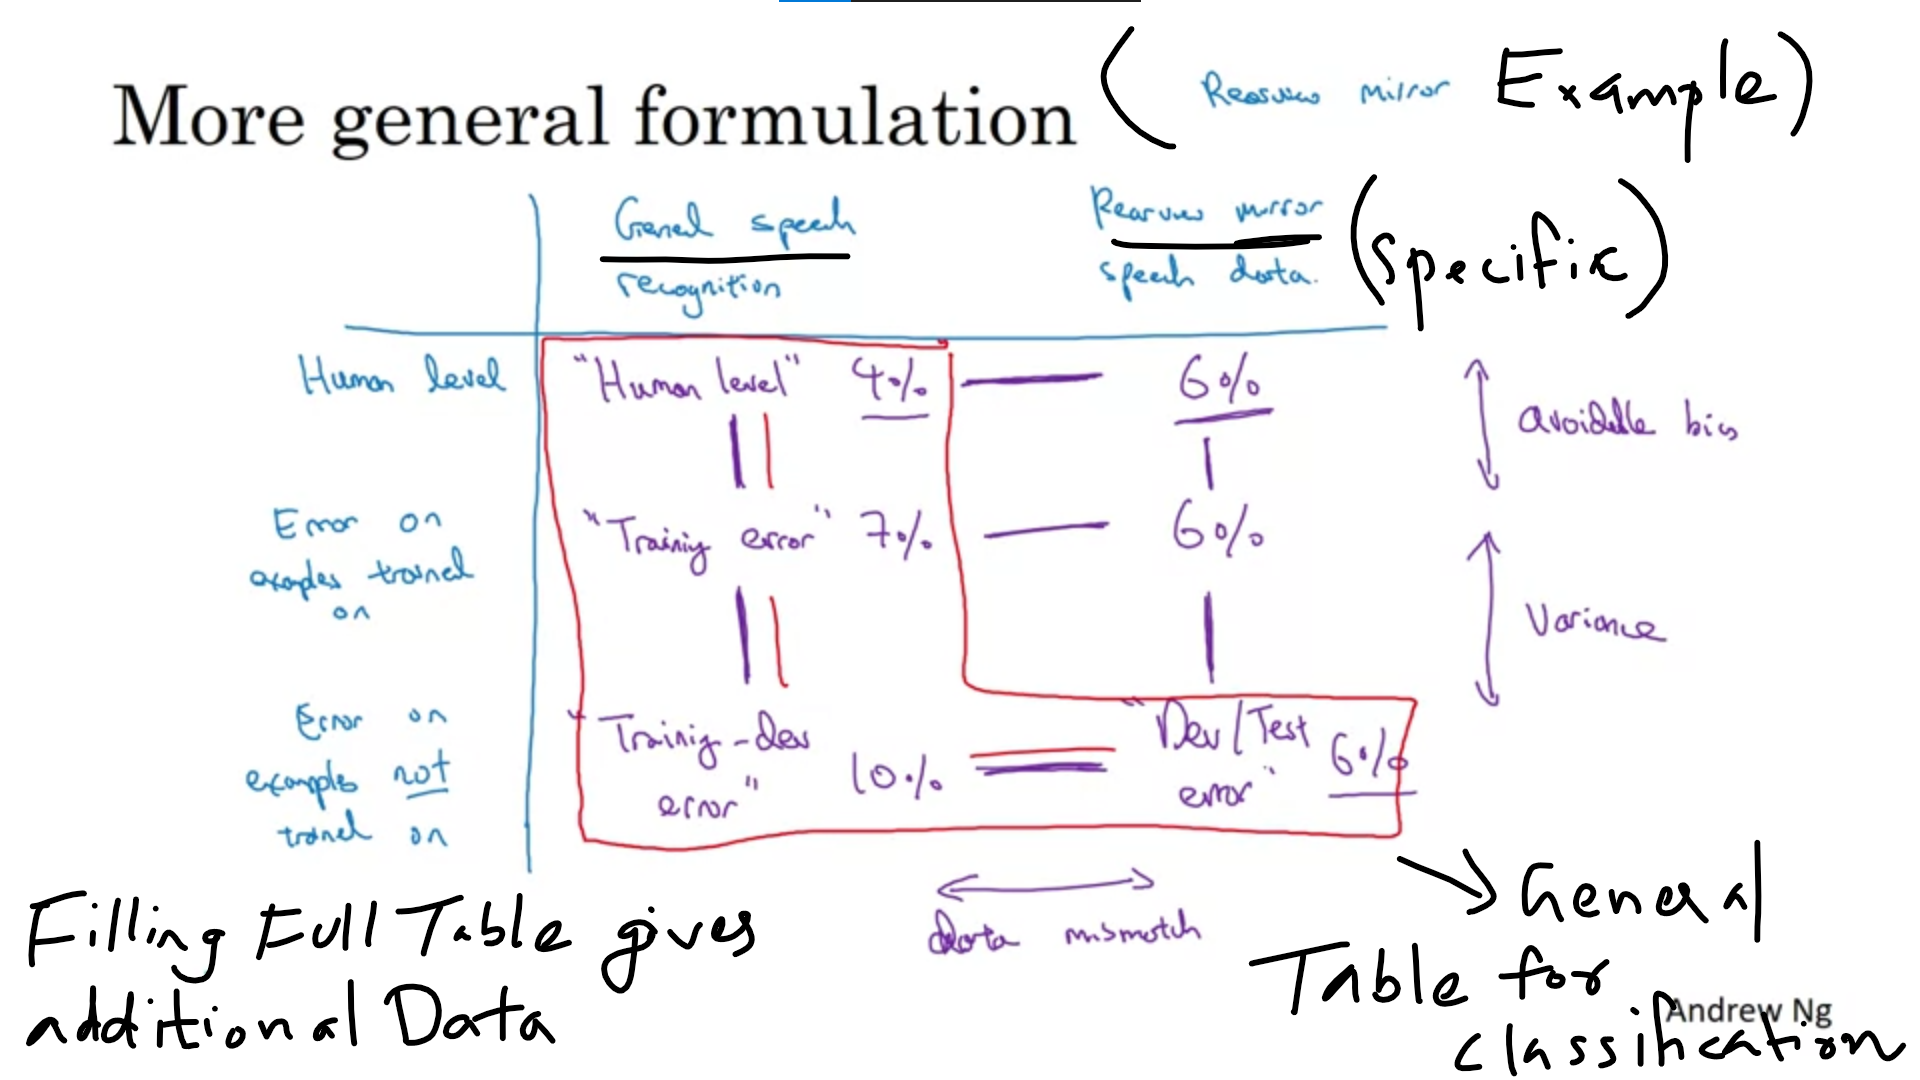 More general formulation ( Rearview mirror Example)
General speech recognition
Rearview mirror speech data. (Specific)
Human level
"Human level" 4%
6%
avoidable bias
Error on
examples trained
on
"Training error" 7%
6%
Variance
Error on
examples not
trained on
"Training-dev
error" 10%
"Dev/Test
error" 6%
data mismatch
Filling Full Table gives
additional Data
General
Table for
classification
Andrew Ng